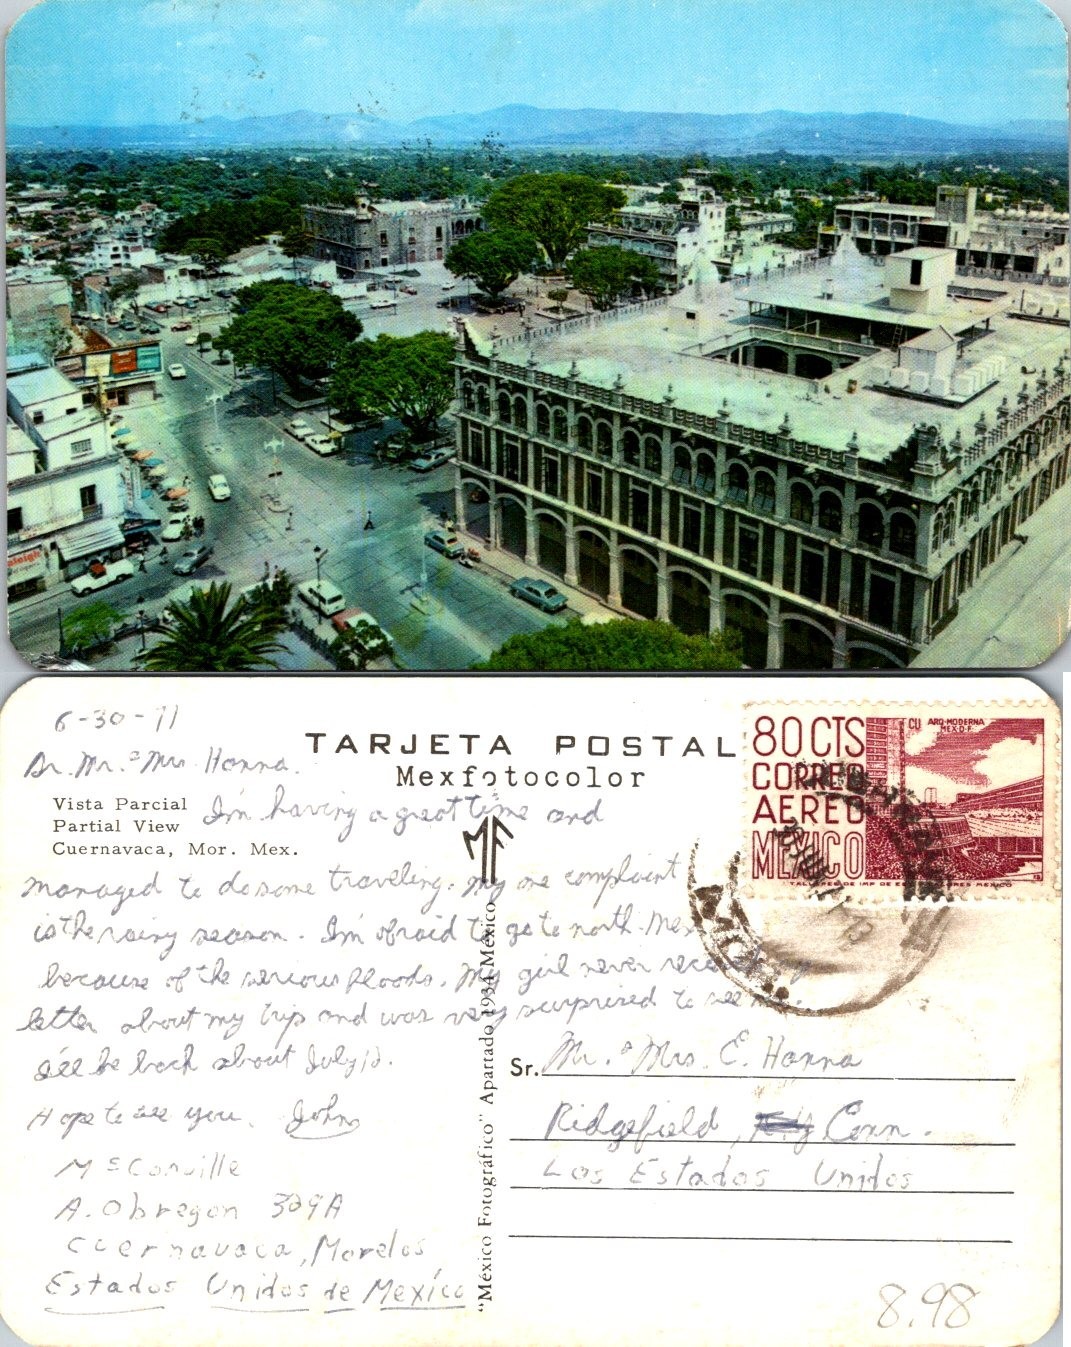 6-30-71
Dr. Mr. & Mrs. Hanna.
TARJETA POSTAL
Mexfotocolor
Vista Parcial
Partial View
Cuernavaca, Mor. Mex.
I'm having a great time and
managed to do some traveling. My one complaint
is the rainy season. I'm afraid to go to north Mex
because of the serious floods. My girl never rece my
letter about my trip and was very surprised to see me.
I'll be back about July 12.
Hope to see you. John
McConville
A. Obregon 309A
Cuernavaca, Morelos
Estados Unidos de México
MF
"México Fotográfico" Apartado 1934 México
80 CTS
CORREO
AEREO
MEXICO
CU ARQ-MODERNA
MEX·D·F·
TALLERES DE IMP DE ES ORES MEXICO
Sr. Mr. & Mrs. E. Hanna
Ridgefield, Conn.
Los Estados Unidos
8.98